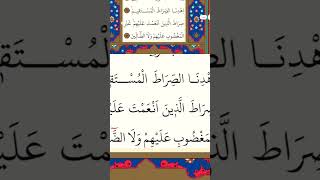 اِهْدِنَا الصِّرَاطَ الْمُسْتَقِيمَ
صِرَاطَ الَّذِينَ اَنْعَمْتَ عَلَيْهِمْ غَيْرِ
الْمَغْضُوبِ عَلَيْهِمْ وَلَا الضَّالِّينَ
هْدِنَا الصِّرَاطَ الْمُسْتَقِ
رَاطَ الَّذِينَ اَنْعَمْتَ عَلَيْ
مَغْضُوبِ عَلَيْهِمْ وَلَا الضَّا